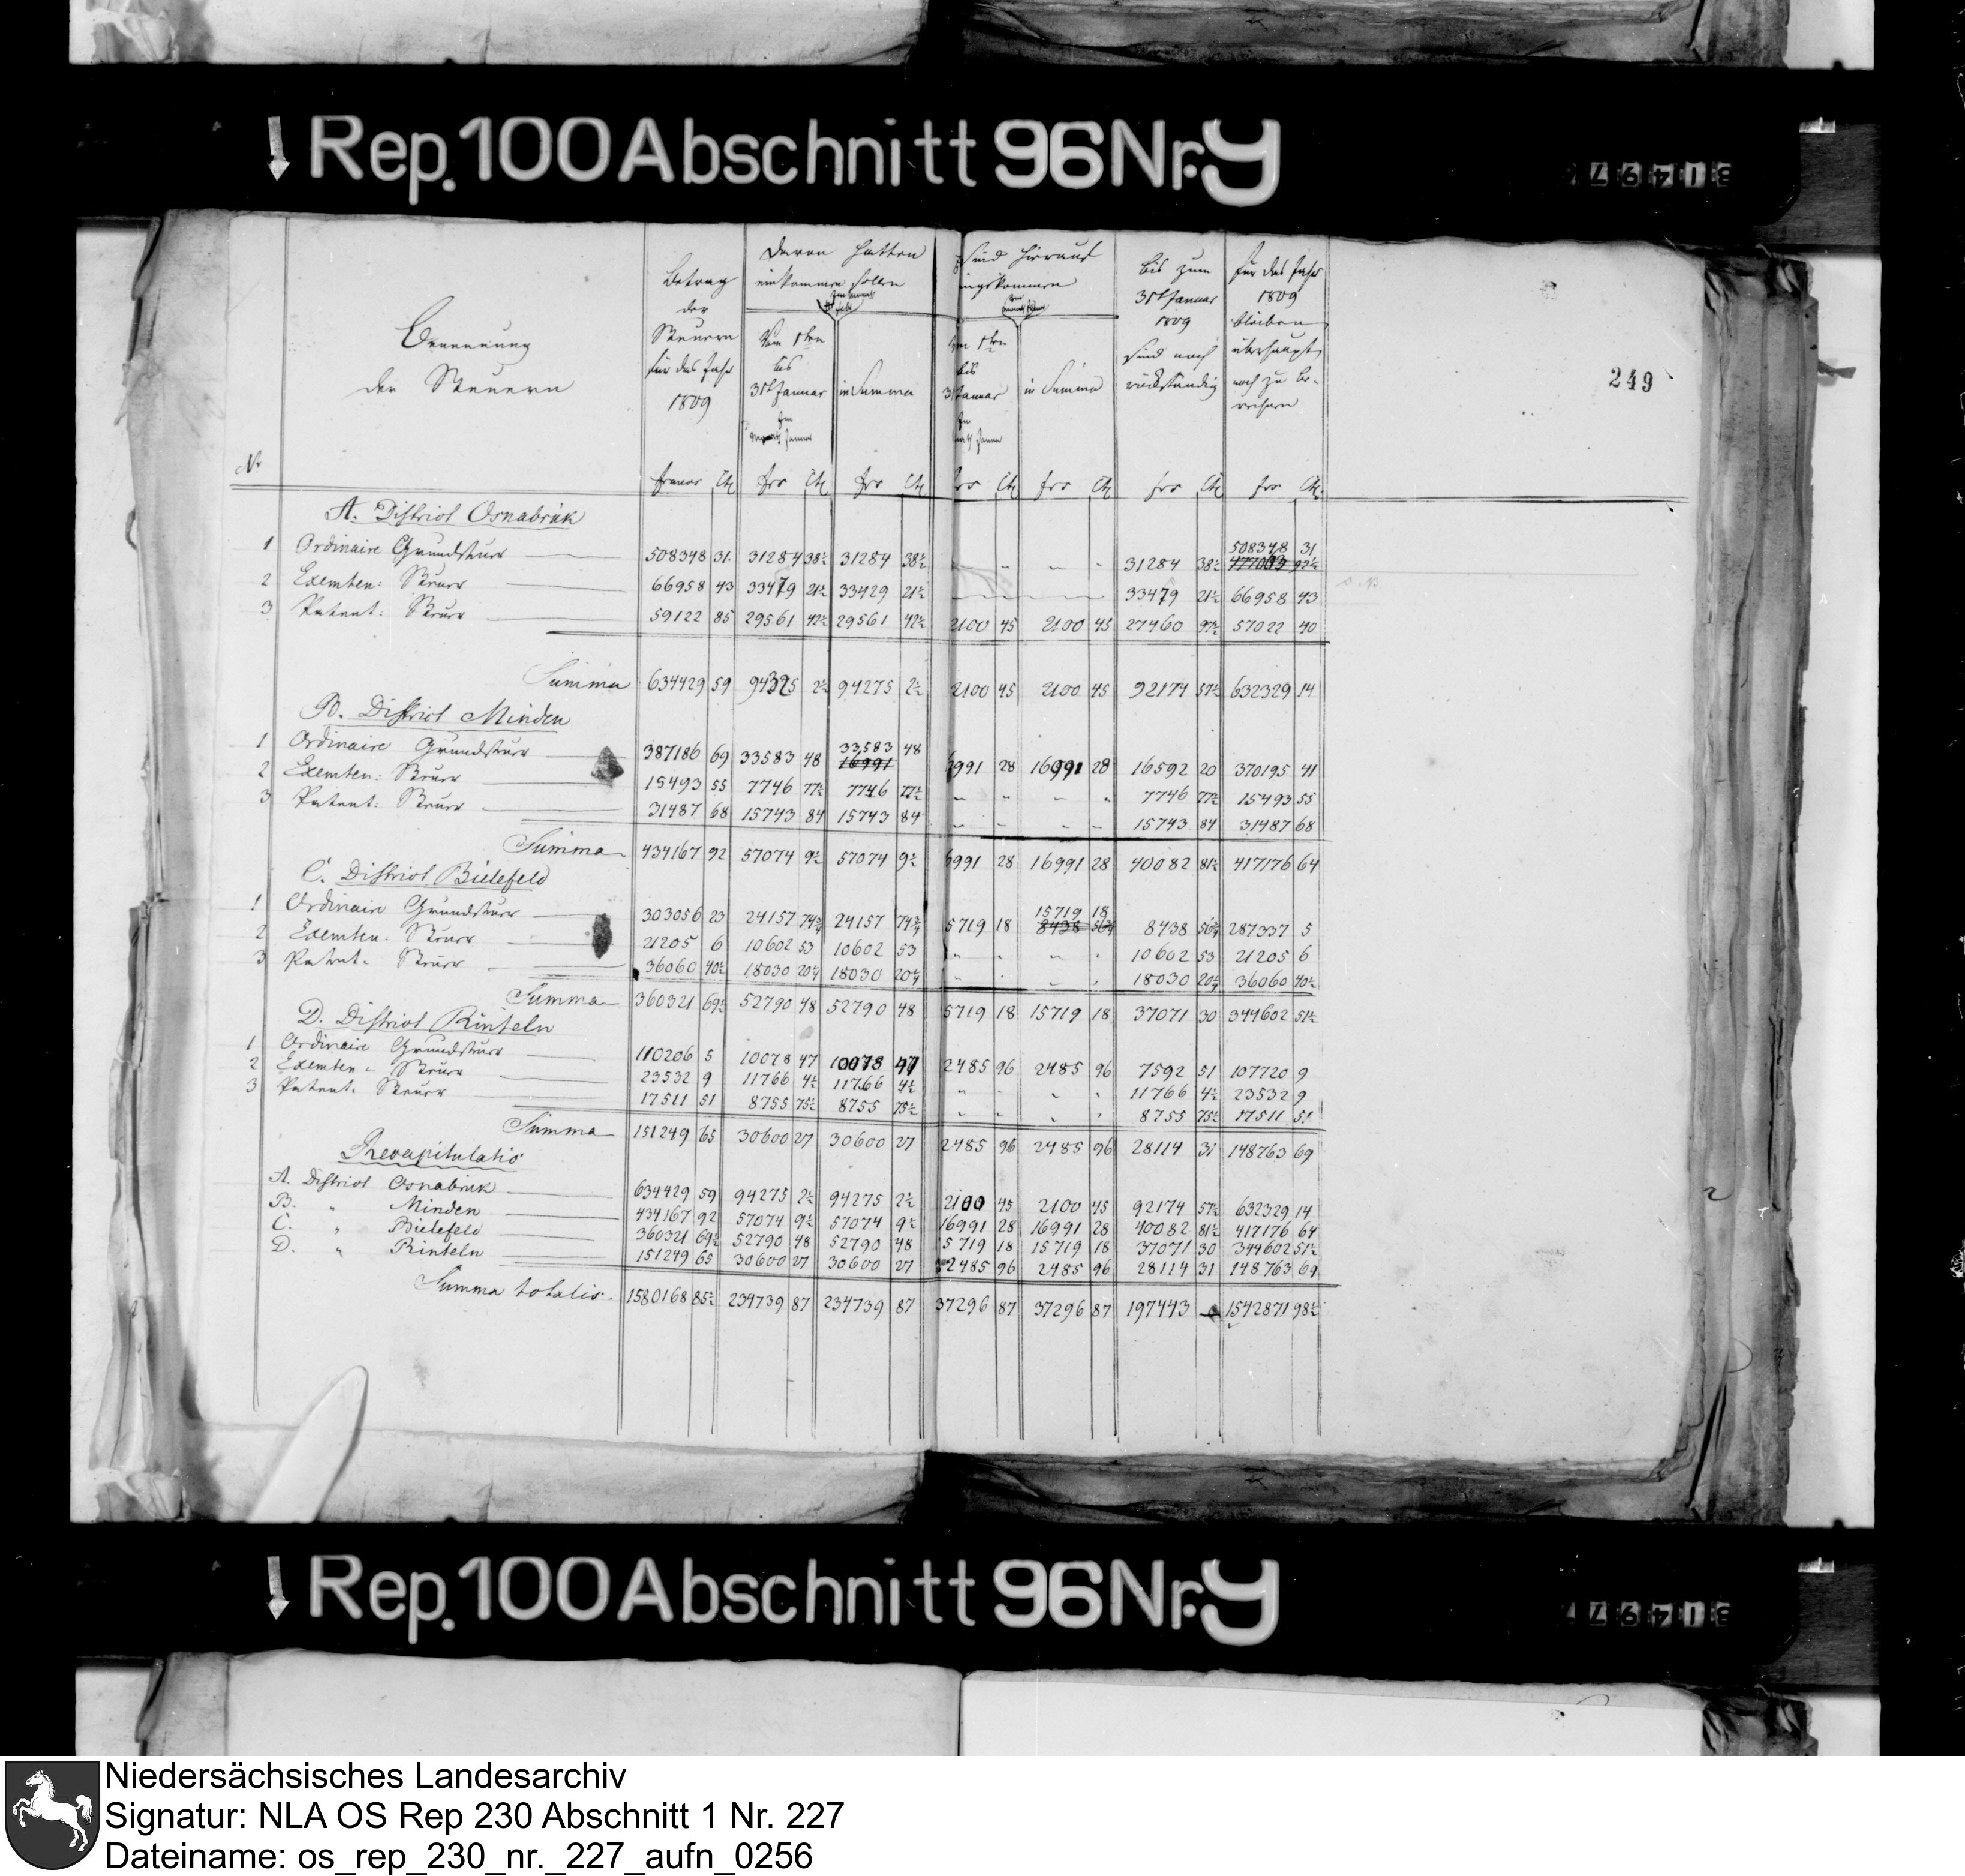 Rep. 100 Abschnitt 96 Nr. 9
31497
249
Benennung
der Steuern
Betrag
der
Steuern
für das Jahr
1809
Davon hätten
einkommen sollen
Vom 1ten
bis
31t Januar
in Summa
Sind hierauf
eingekommen
vom 1ten
bis
31 Januar
in Summa
bis zum
31t Januar
1809
sind noch
rückständig
für das Jahr
1809
bleiben
überhaupt
noch zu be-
No
francs Ct frcs Ct frcs Ct frcs Ct frcs Ct frcs Ct frcs Ct
A. District Osnabrük
508348 31
1 Ordinaire Grundsteuer 508348 31 31284 38½ 31284 38½ - - - - 31284 38½
2 Exemten: Steuer 66958 43 33479 21½ 33429 21½ 33479 21½ 66958 43
3 Patent: Steuer 59122 85 29561 42½ 29561 42½ 2100 45 2100 45 27460 97½ 57022 40
Summa 634429 59 94325 2½ 94275 2½ 2100 45 2100 45 92174 57½ 632329 14
B. District Minden
33583 48
1 Ordinaire Grundsteuer 387186 69 33583 48 16991 6991 28 16991 28 16592 20 370195 41
2 Exemten: Steuer 15493 55 7746 77½ 7746 77½ - - - - 7746 77½ 15493 55
3 Patent: Steuer 31487 68 15743 84 15743 84 - - - - 15743 84 31487 68
Summa 434167 92 57074 9½ 57074 9½ 6991 28 16991 28 40082 81½ 417176 64
C. District Bielefeld
15719 18
1 Ordinaire Grundsteuer 303056 23 24157 74¾ 24157 74¾ 5719 18 8438 56¾ 8438 56¾ 287337 5
2 Exemten: Steuer 21205 6 10602 53 10602 53 - - - - 10602 53 21205 6
3 Patent: Steuer 36060 40½ 18030 20¼ 18030 20¼ - - - - 18030 20¼ 36060 40½
Summa 360321 69½ 52790 48 52790 48 5719 18 15719 18 37071 30 344602 51½
D. District Rinteln
1 Ordinaire Grundsteuer 110206 5 10078 47 10078 47 2485 96 2485 96 7592 51 107720 9
2 Exemten: Steuer 23532 9 11766 4½ 11766 4½ - - - - 11766 4½ 23532 9
3 Patent: Steuer 17511 51 8755 75½ 8755 75½ - - - - 8755 75½ 17511 51
Summa 151249 65 30600 27 30600 27 2485 96 2485 96 28114 31 148763 69
Recapitulatio
A. District Osnabrük 634429 59 94275 2½ 94275 2½ 2100 45 2100 45 92174 57½ 632329 14
B. " Minden 434167 92 57074 9½ 57074 9½ 16991 28 16991 28 40082 81½ 417176 64
C. " Bielefeld 360321 69½ 52790 48 52790 48 15719 18 15719 18 37071 30 344602 51½
D. " Rinteln 151249 65 30600 27 30600 27 2485 96 2485 96 28114 31 148763 69
Summa totalis 1580168 85½ 234739 87 234739 87 37296 87 37296 87 197443 - 1542871 98½
Rep. 100 Abschnitt 96 Nr. 9
31497
Niedersächsisches Landesarchiv
Signatur: NLA OS Rep 230 Abschnitt 1 Nr. 227
Dateiname: os_rep_230_nr._227_aufn_0256